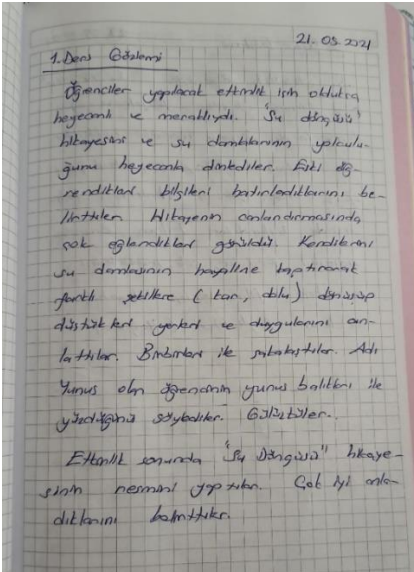 21.05.2021
1. Ders Gözlemi
Öğrenciler yapılacak etkinlik için oldukça
heyecanlı ve meraklıydı. "Su döngüsü"
hikayesini ve su damlalarının yolculu-
ğunu heyecanla dinlediler. Eski öğ-
rendikleri bilgileri hatırladıklarını be-
lirttiler. Hikayenin canlandırmasında
çok eğlendikleri görüldü. Kendilerini
su damlasının hayaline kaptırarak
farklı şekillere (kar, dolu) dönüşüp
düştükleri yerleri ve duygularını an-
lattılar. Birbirleri ile şakalaştılar. Adı
Yunus olan öğrencinin yunus balıkları ile
yüzdüğünü söylediler. Gülüştüler.
Etkinlik sonunda "Su Döngüsü" hikaye-
sinin resmini yaptılar. Çok iyi anla-
dıklarını belirttiler.